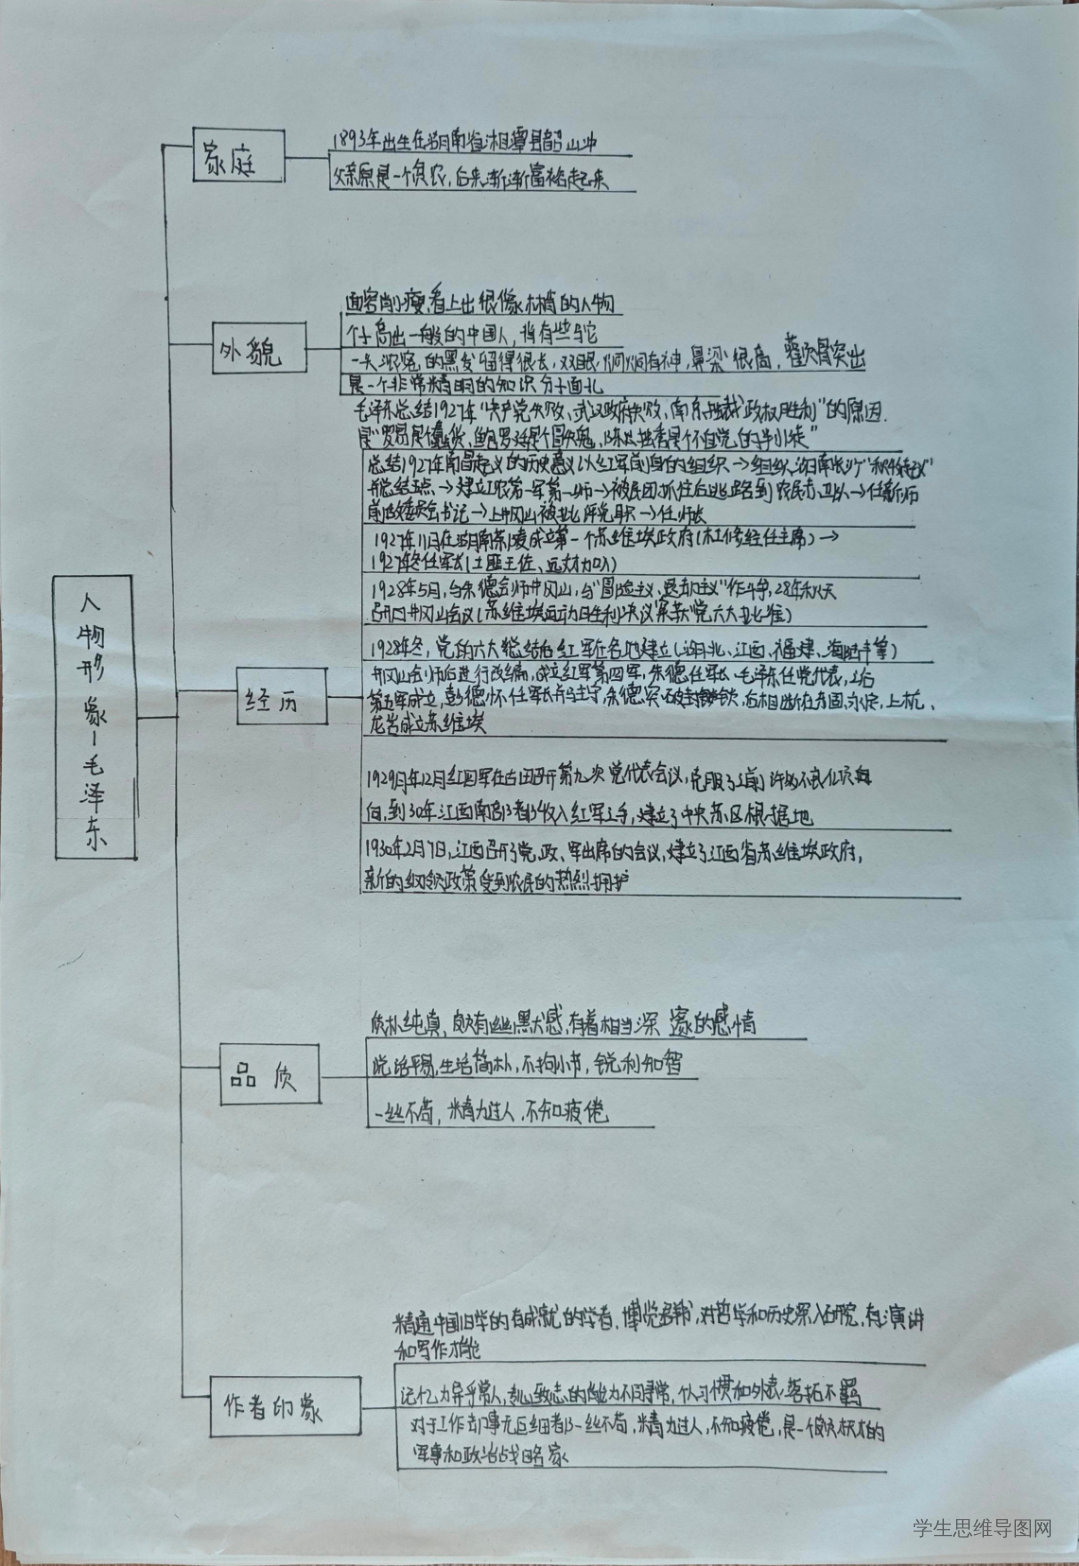 人物形象—毛泽东
家庭
1893年出生在湖南省湘潭县韶山冲
父亲原是一个贫农，后来渐渐富裕起来
外貌
面容削瘦，看上出很像林肯的人物
个子高出一般的中国人，背有些驼
一头浓密的黑发留得很长，双眼炯炯有神，鼻梁很高，颧骨突出
是一个非常精明的知识分子面孔
经历
毛泽东总结1927年“共产党失败、武汉政府失败，南京独裁政权胜利”的原因.
是“罗易是个蠢货，鲍罗廷是个冒失鬼，陈独秀是个不自觉的叛徒”
总结1927年南昌起义的历史意义(以红军前身的组织→组织湖南长沙“秋收起义”
并总结五点→建立工农第一军第一师→被民团抓住后逃路到农民赤卫队→任新师
前敌委员会书记→上井冈山被批评党职→任师长
1927年11月在湖南茶陵成立第一个苏维埃政府(杜修经任主席)→
1927冬任军长(土匪王佐、袁文才加入)
1928年5月，与朱德会师井冈山，与“冒险主义，退却主义”作斗争，28年秋天
召开井冈山会议(苏维埃运动胜利决议案获党六大批准)
1928年冬，党的六大总结后红军在各地建立(湖北、江西、福建、海陆丰等)
井冈山会师后进行改编，成立红军第四军，朱德任军长毛泽东任党代表，之后
第五军成立，彭德怀任军长并驻守，朱德突破封锁，后相继在方圆、永定，上杭、
龙岩成立苏维埃
1929年12月红四军在古田召开第九次党代表会议，克服了之前许多不良化倾
向，到30年江西南部都收入红军之手，建立了中央苏区根据地
1930年2月7日，江西召开了党，政、军出席的会议，建立了江西省苏维埃政府，
新的纲领政策受到农民的热烈拥护
品质
质朴纯真，颇有幽默感，有着相当深邃的感情
说话平易，生活简朴，不拘小节，锐利知智
一丝不苟，精力过人，不知疲倦
作者印象
精通中国旧学的有成就的学者，博览群书，对哲学和历史深入研究，有演讲
和写作才能
记忆力异乎常人，专心致志的能力不同寻常，个人习惯和外表落拓不羁
对于工作却事无巨细都一丝不苟，精力过人，不知疲倦，是一个颇有天才的
军事和政治战略家
学生思维导图网